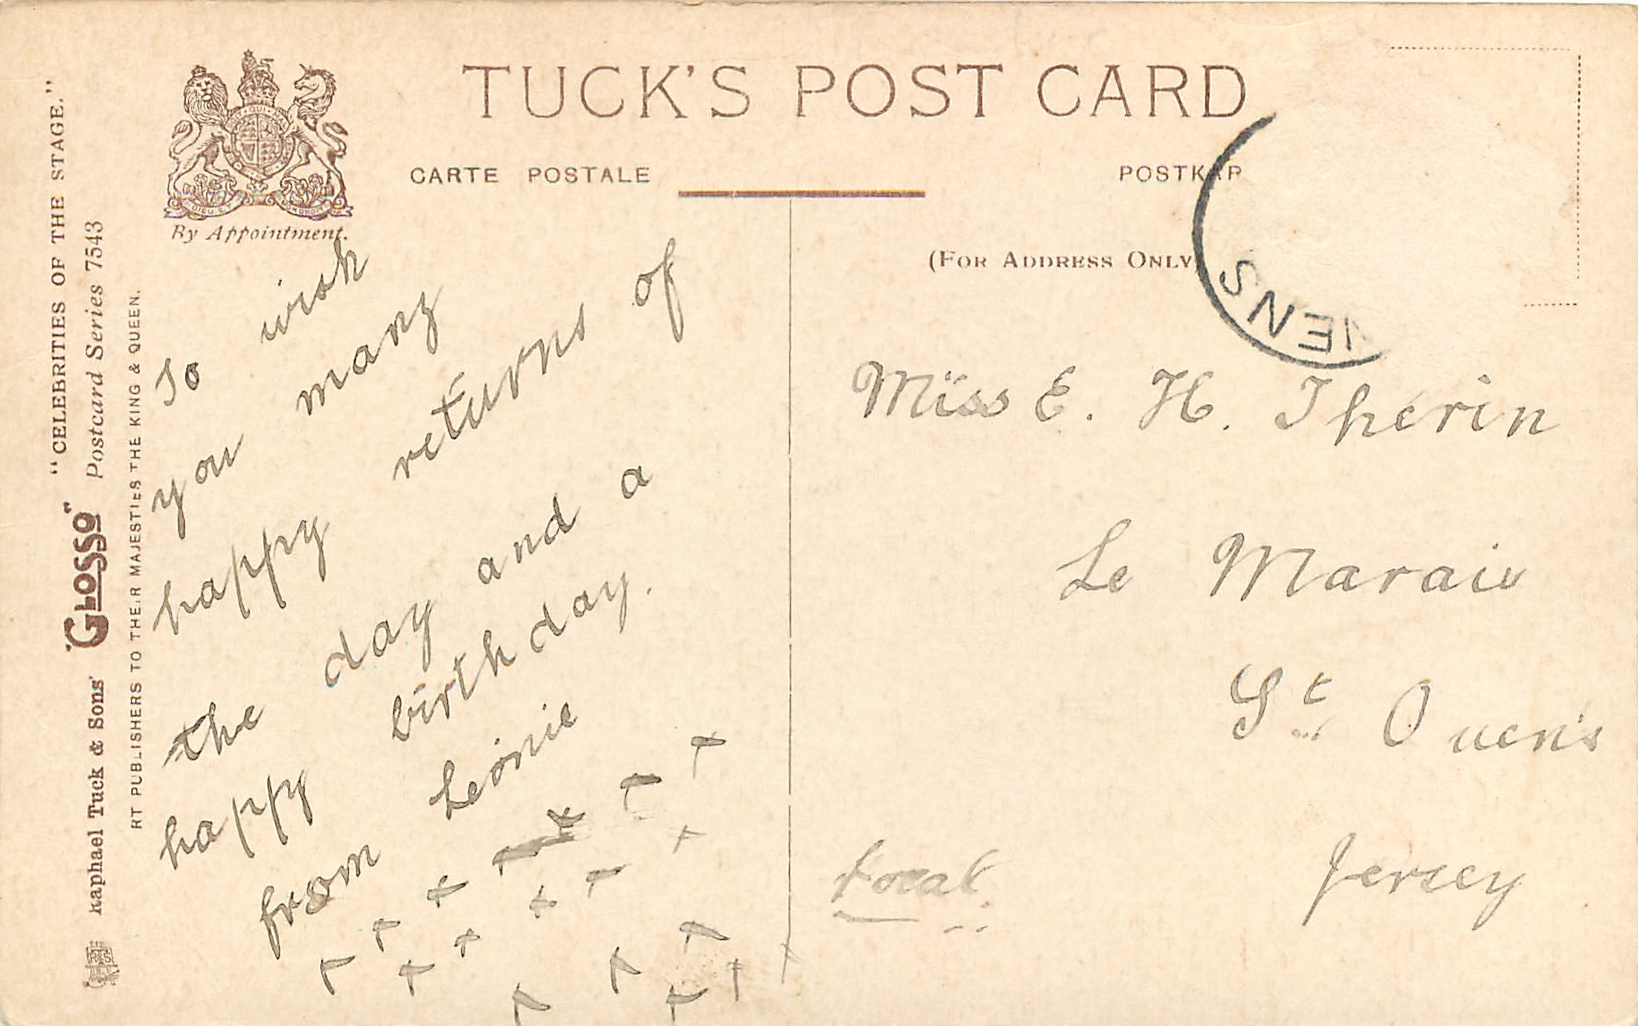 TUCK'S POST CARD
CARTE POSTALE
POSTKAR
(FOR ADDRESS ONLY
By Appointment.
"CELEBRITIES OF THE STAGE."
Raphael Tuck & Sons' "GLOSSO" Postcard Series 7543
RT PUBLISHERS TO THEIR MAJESTIES THE KING & QUEEN.
To wish
you many
happy returns of
the day and a
happy birthday.
from Leonie
Miss E. H. Therin
Le Marais
St Ouen's
Jersey
Local